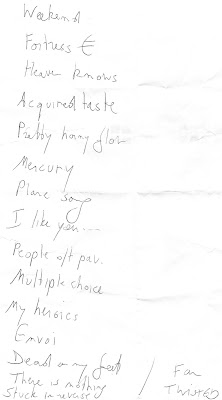 Weekend
Fortress €
Heaven knows
Acquired taste
Pretty horny flow
Mercury
Plane song
I like you...
People o/t pav.
Multiple choice
My heroics
Envoi
Dead on my feet
There is nothing
Stuck in reverse
/ Fan
Twisted